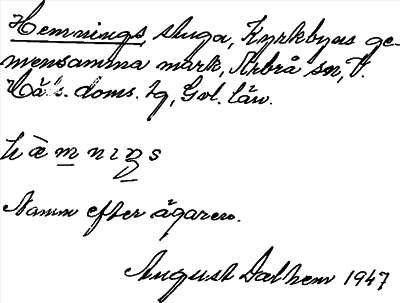 Hemnings stuga, Kyrkbyns ge-
mensamma mark, Arbrå sn, V.
Häls. doms. tg, Gvl. län.
hæ̀mnıŋs
Namn efter ägaren.
August Dalhem 1947